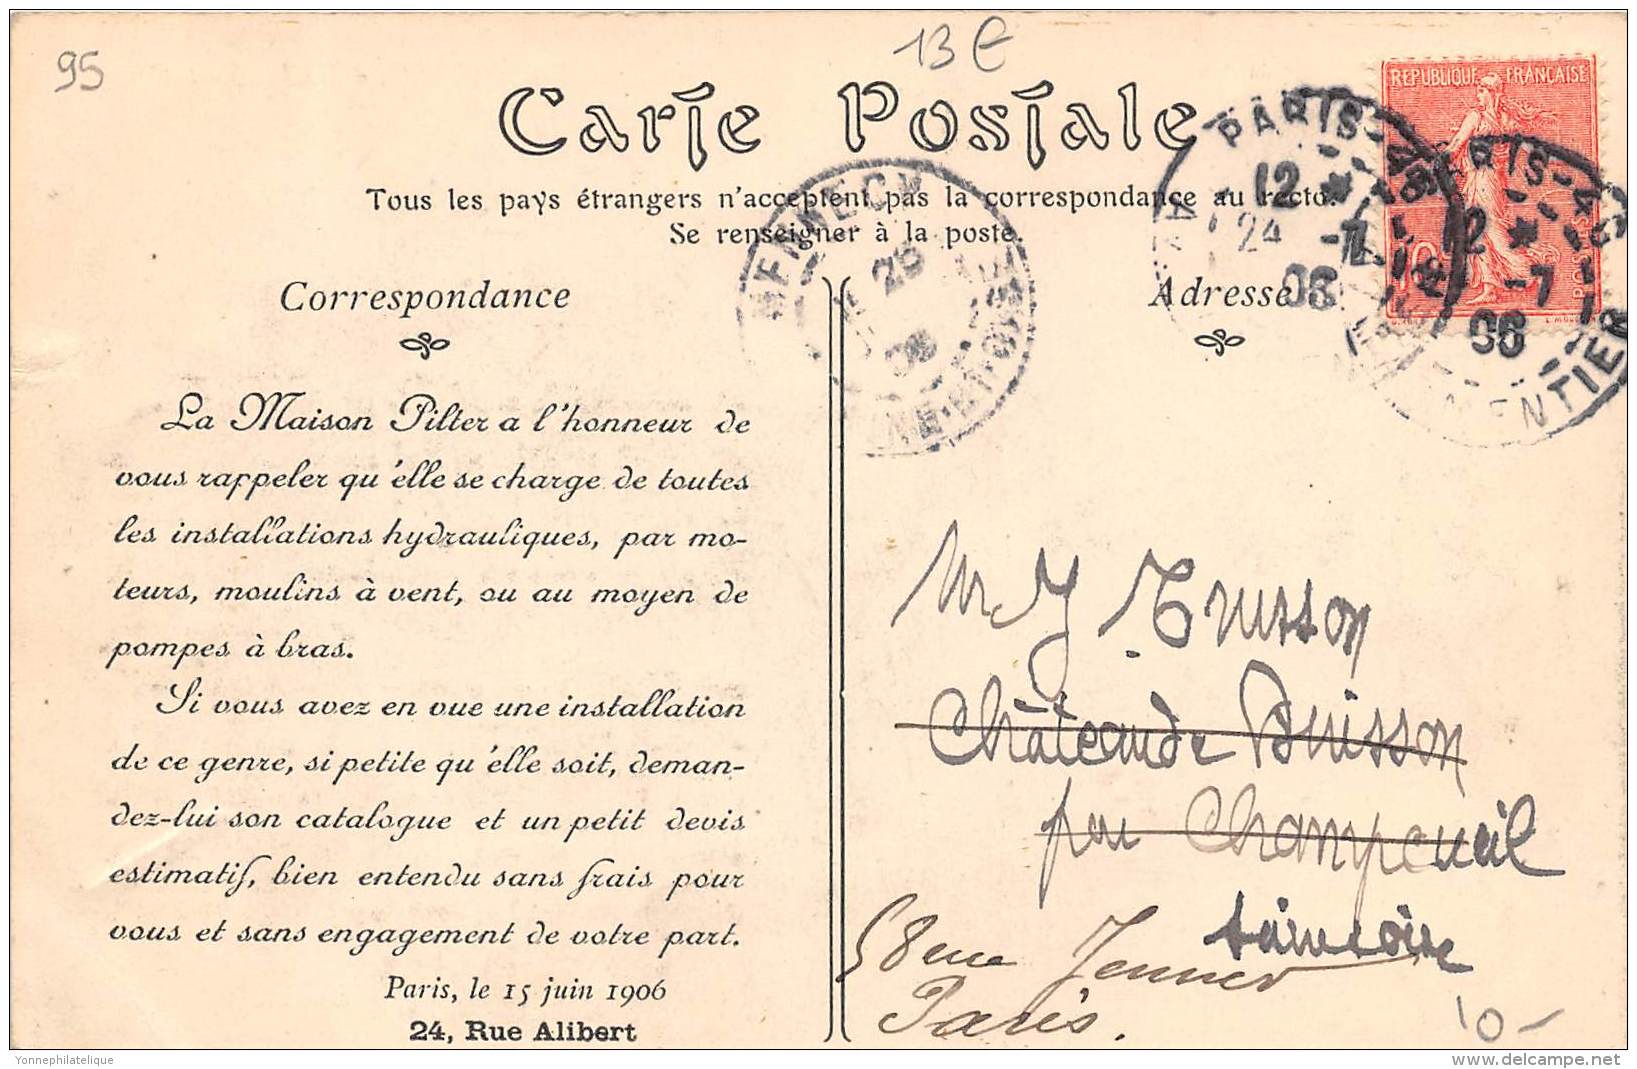 95
13 €
Carte Postale
REPUBLIQUE FRANÇAISE
10
POSTES
PARIS-48
12 * 24
-7
06
PARIS-48
12 *
-7
06
MENTIER
Tous les pays étrangers n'acceptent pas la correspondance au recto.
Se renseigner à la poste.
MENNECY
25
06
SEINE-ET-OISE
Correspondance
Adresse
La Maison Pilter a l'honneur de
vous rappeler qu'elle se charge de toutes
les installations hydrauliques, par mo-
teurs, moulins à vent, ou au moyen de
pompes à bras.
Si vous avez en vue une installation
de ce genre, si petite qu'elle soit, deman-
dez-lui son catalogue et un petit devis
estimatif, bien entendu sans frais pour
vous et sans engagement de votre part.
Paris, le 15 juin 1906
24, Rue Alibert
Mr J Truisson
Château de Buisson
par Champcueil
Seine et Oise
58 rue Jenner
Paris.
10-
Yonnephilatelique
www.delcampe.net